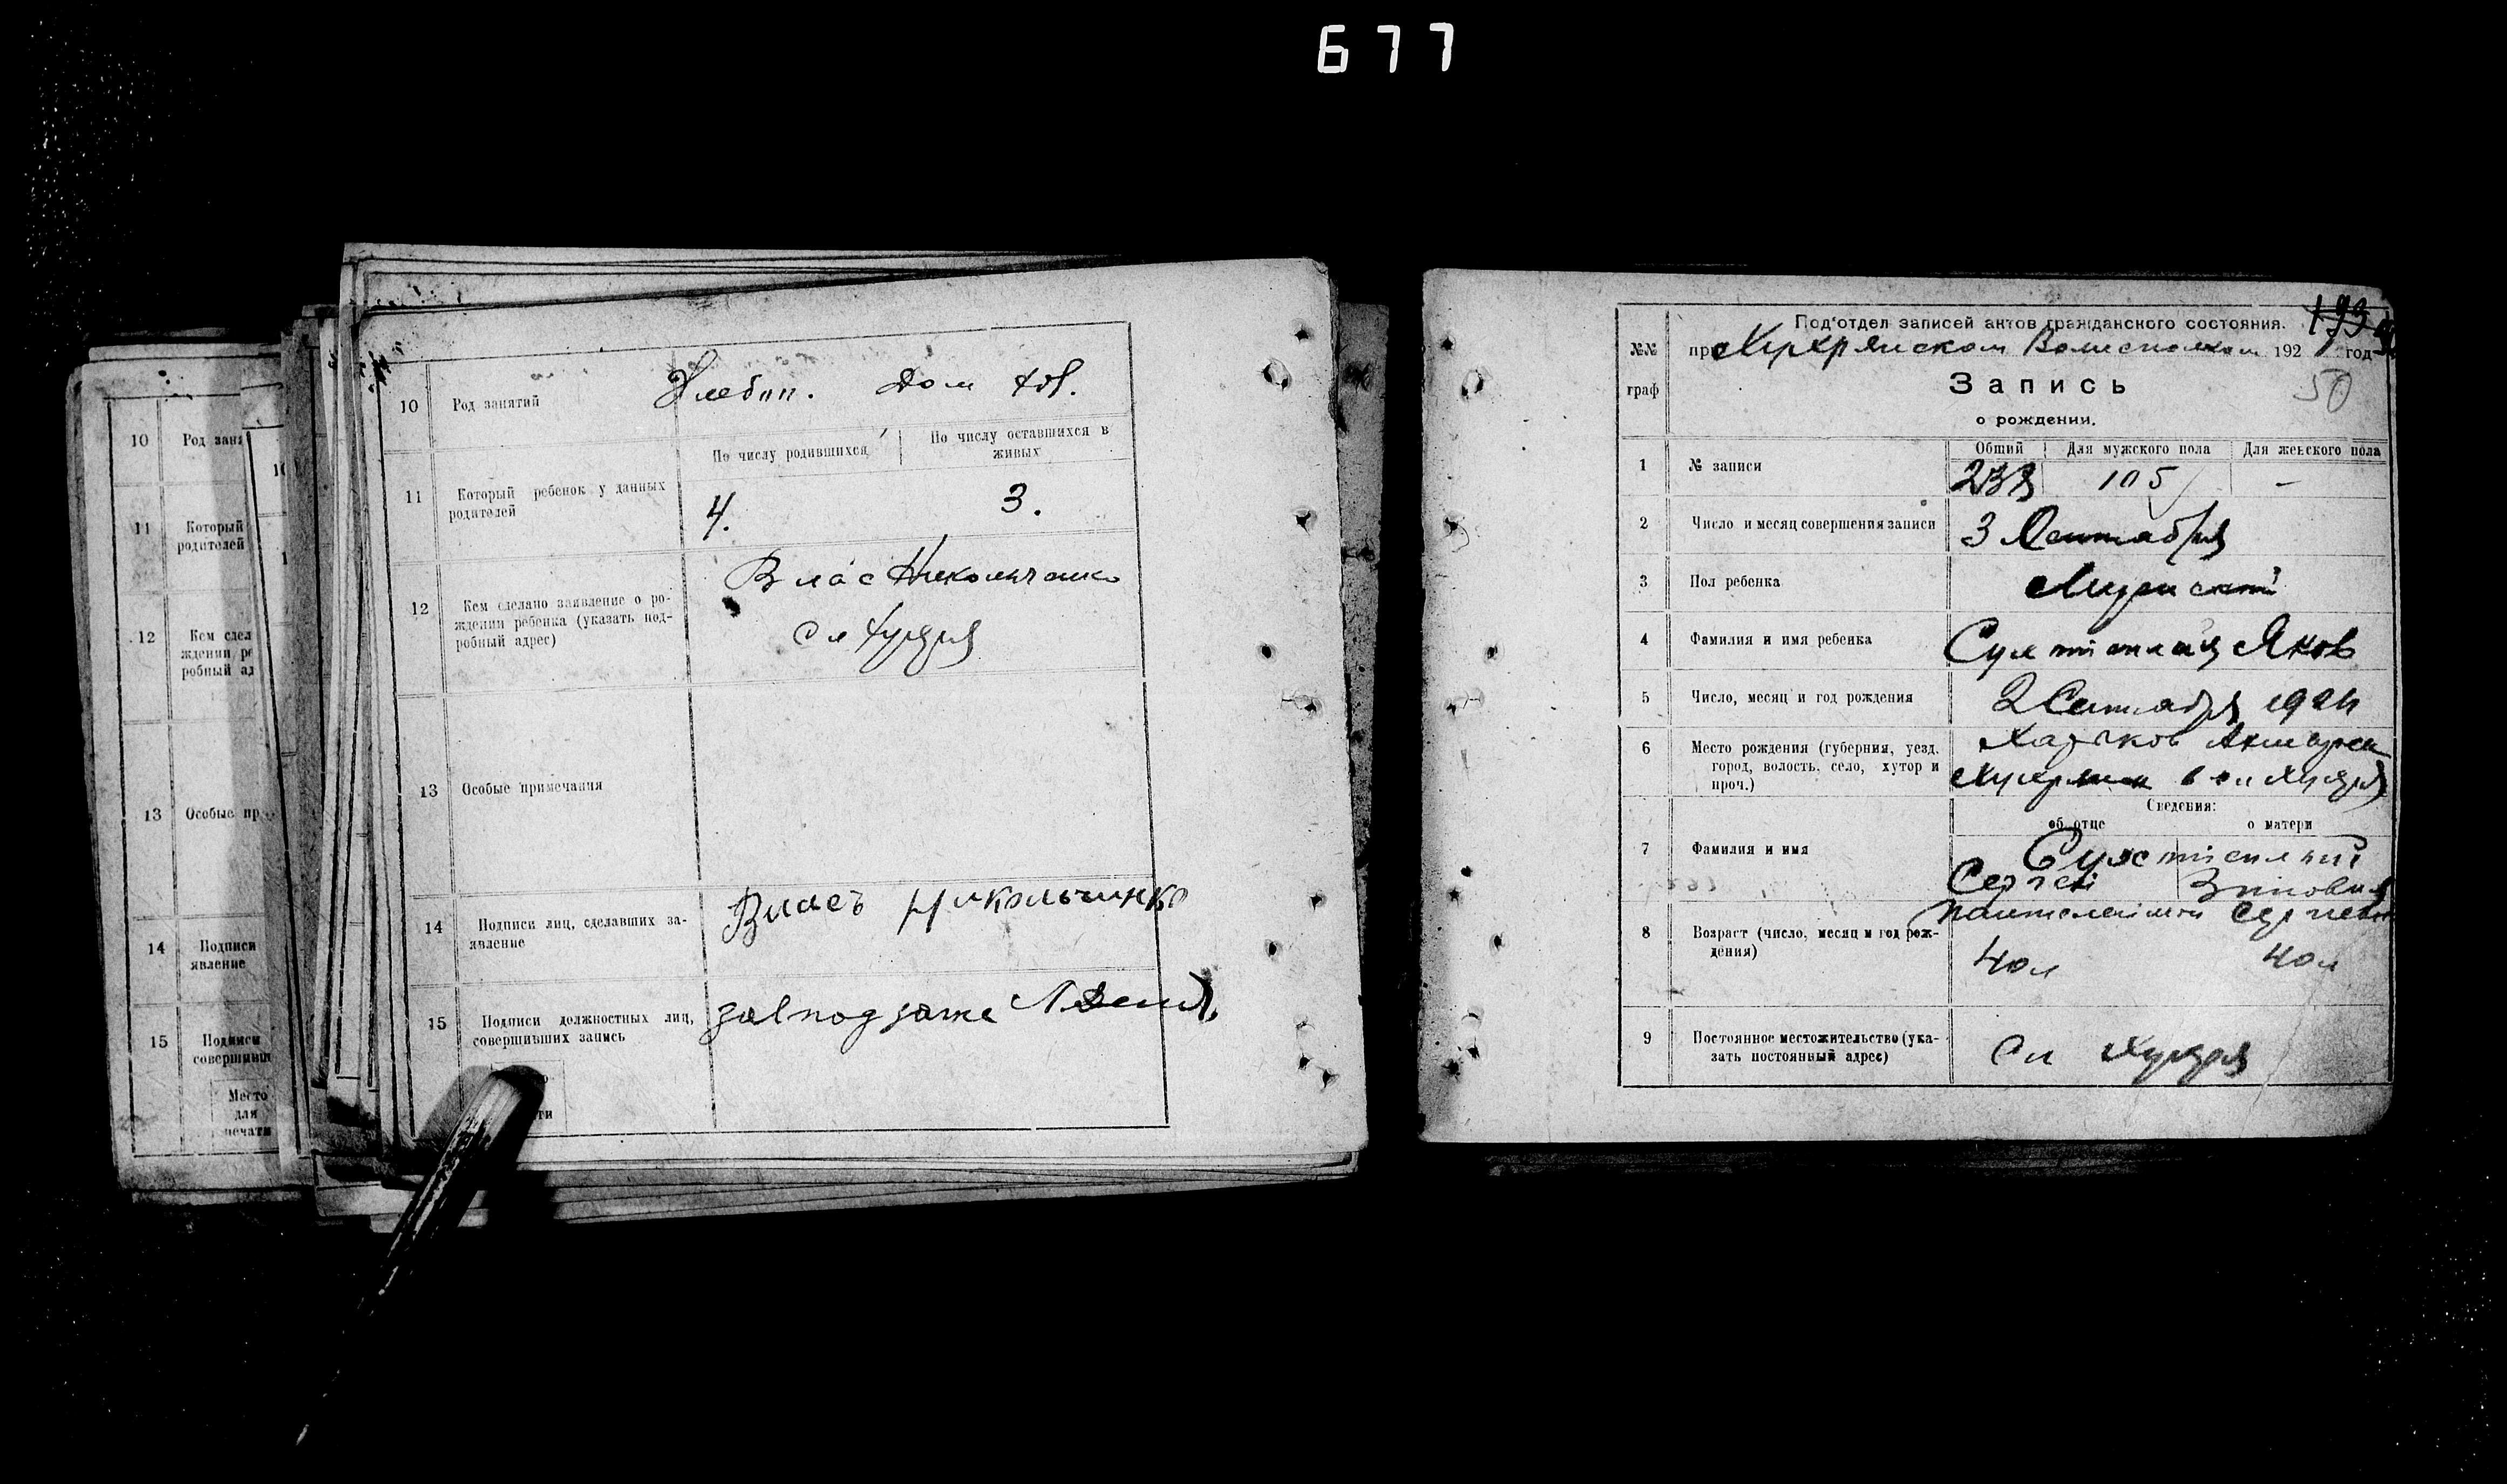 677
10 Род заня
11 Который
родителей
12 Кем сдел
ждении ре
робный ад
13 Особые пр
14 Подписи
явление
15 Подписи
совершивш
Место
для
печати
10 Род занятий Хлебоп. Дом хоз.
По числу родившихся По числу оставшихся в
живых
11 Который ребенок у данных
родителей
4. 3.
12 Кем сделано заявление о ро-
ждении ребенка (указать под-
робный адрес)
Влас Никольченко
Сл Хухря
13 Особые примечания
14 Подписи лиц, сделавших за-
явление
Власъ Никольчинко
15 Подписи должностных лиц,
совершивших запись
завподзагсе
ти
Под'отдел записей актов гражданского состояния. 193
№№ при Хухрянском Волисполком 192 год
граф Запись 50
о рождении.
Общий Для мужского пола Для женского пола
1 № записи 238 105 -
2 Число и месяц совершения записи 3 Сентября
3 Пол ребенка Мужский
4 Фамилия и имя ребенка Яков
5 Число, месяц и год рождения 2 Сентября
6 Место рождения (губерния, уезд,
город, волость, село, хутор и
проч.)
Харьков Ахтырск
Хухрянск в сл Хухря
Сведения:
об отце о матери
7 Фамилия и имя
Сергей Зиновия
Пантелеймон Сергеевн
8 Возраст (число, месяц и год рож-
дения)
40л 40л
9 Постоянное местожительство (ука-
зать постоянный адрес)
Сл Хухря